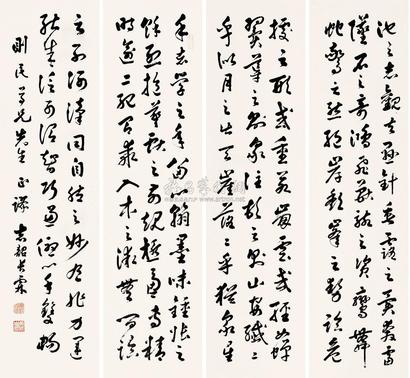 池之志觀夫懸針垂露之異奔雷
墜石之奇鴻飛獸駭之資鸞舞
蛇驚之態絕岸頹峯之勢臨危
據之形或重若崩雲或輕如蟬
翼導之則泉注頓之則山安纖纖
乎似月之出天崖落落乎猶衆星
余志學之年留心翰墨味鍾張之
餘烈挹羲獻之前規極慮專精
時逾二紀有乖入木之術無間臨
之列河漢同自然之妙有非力運
能成信可謂智巧兼優心手雙暢
剛民尊兄先生正謬 志韶長霖